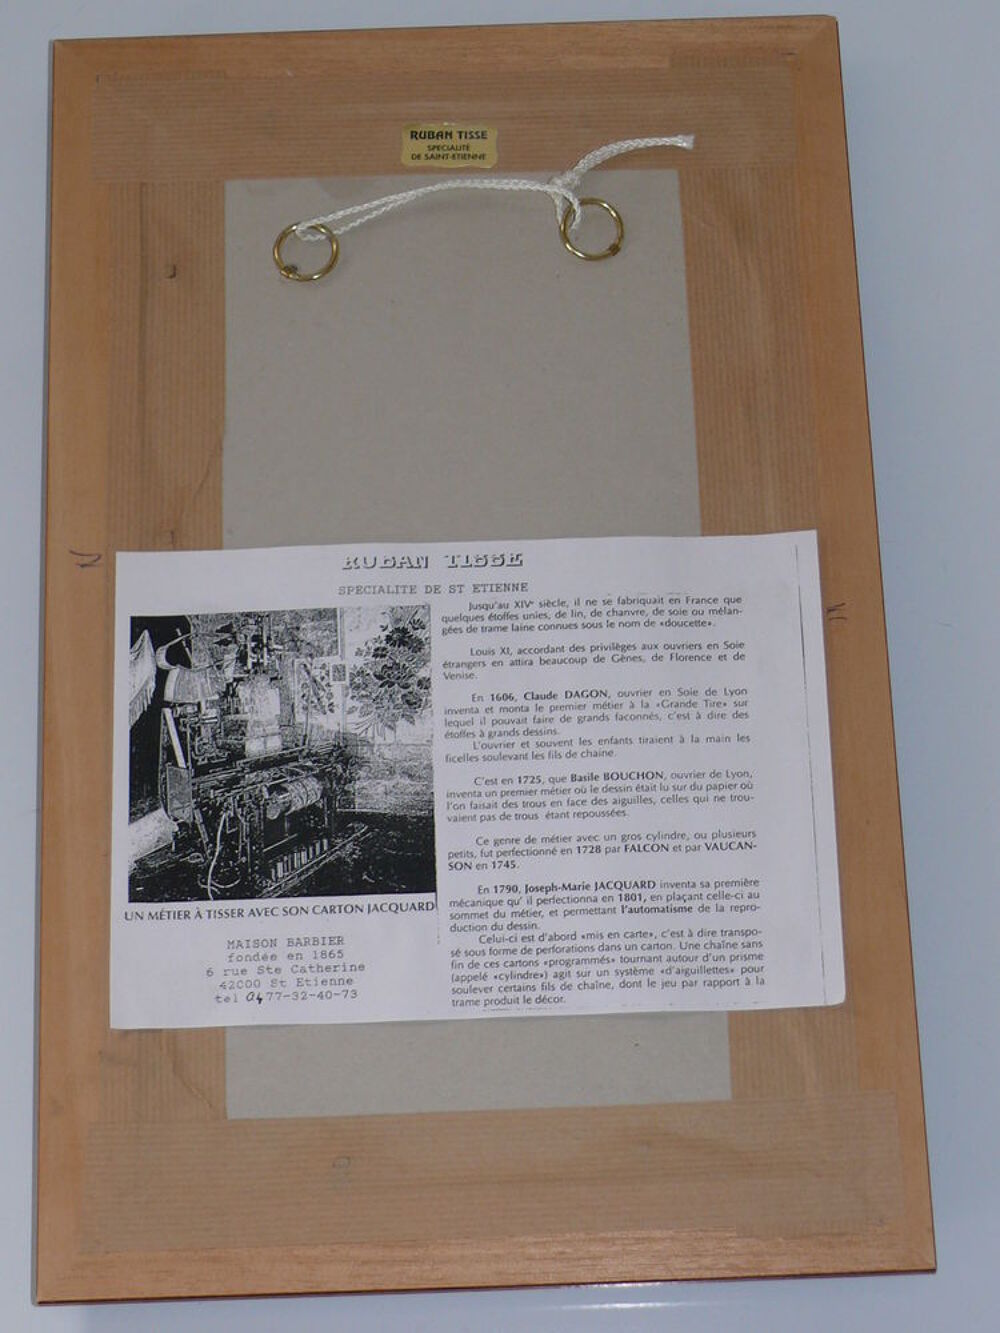 RUBAN TISSE
SPECIALITÉ
DE SAINT-ETIENNE
RUBAN TISSE
SPECIALITE DE ST ETIENNE
UN MÉTIER À TISSER AVEC SON CARTON JACQUARD
MAISON BARBIER
fondée en 1865
6 rue Ste Catherine
42000 St Etienne
tel 0477-32-40-73
Jusqu'au XIVe siècle, il ne se fabriquait en France que
quelques étoffes unies, de lin, de chanvre, de soie ou mélan-
gées de trame laine connues sous le nom de «doucette».
Louis XI, accordant des privilèges aux ouvriers en Soie
étrangers en attira beaucoup de Gênes, de Florence et de
Venise.
En 1606, Claude DAGON, ouvrier en Soie de Lyon
inventa et monta le premier métier à la «Grande Tire» sur
lequel il pouvait faire de grands faconnés, c'est à dire des
étoffes à grands dessins.
L'ouvrier et souvent les enfants tiraient à la main les
ficelles soulevant les fils de chaine.
C'est en 1725, que Basile BOUCHON, ouvrier de Lyon,
inventa un premier métier où le dessin était lu sur du papier où
l'on faisait des trous en face des aiguilles, celles qui ne trou-
vaient pas de trous étant repoussées.
Ce genre de métier avec un gros cylindre, ou plusieurs
petits, fut perfectionné en 1728 par FALCON et par VAUCAN-
SON en 1745.
En 1790, Joseph-Marie JACQUARD inventa sa première
mécanique qu' il perfectionna en 1801, en plaçant celle-ci au
sommet du métier, et permettant l'automatisme de la repro-
duction du dessin.
Celui-ci est d'abord «mis en carte», c'est à dire transpo-
sé sous forme de perforations dans un carton. Une chaîne sans
fin de ces cartons «programmés» tournant autour d'un prisme
(appelé «cylindre») agit sur un système «d'aiguillettes» pour
soulever certains fils de chaîne, dont le jeu par rapport à la
trame produit le décor.